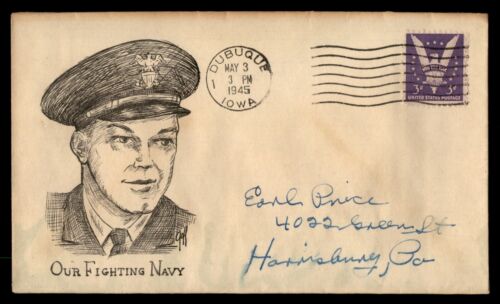 DUBUQUE
1
MAY 3
3 PM
1945
IOWA
WIN THE WAR
3¢ 3¢
UNITED STATES POSTAGE
Earl Price
4022 Green St
Harrisburg, Pa
OUR FIGHTING NAVY